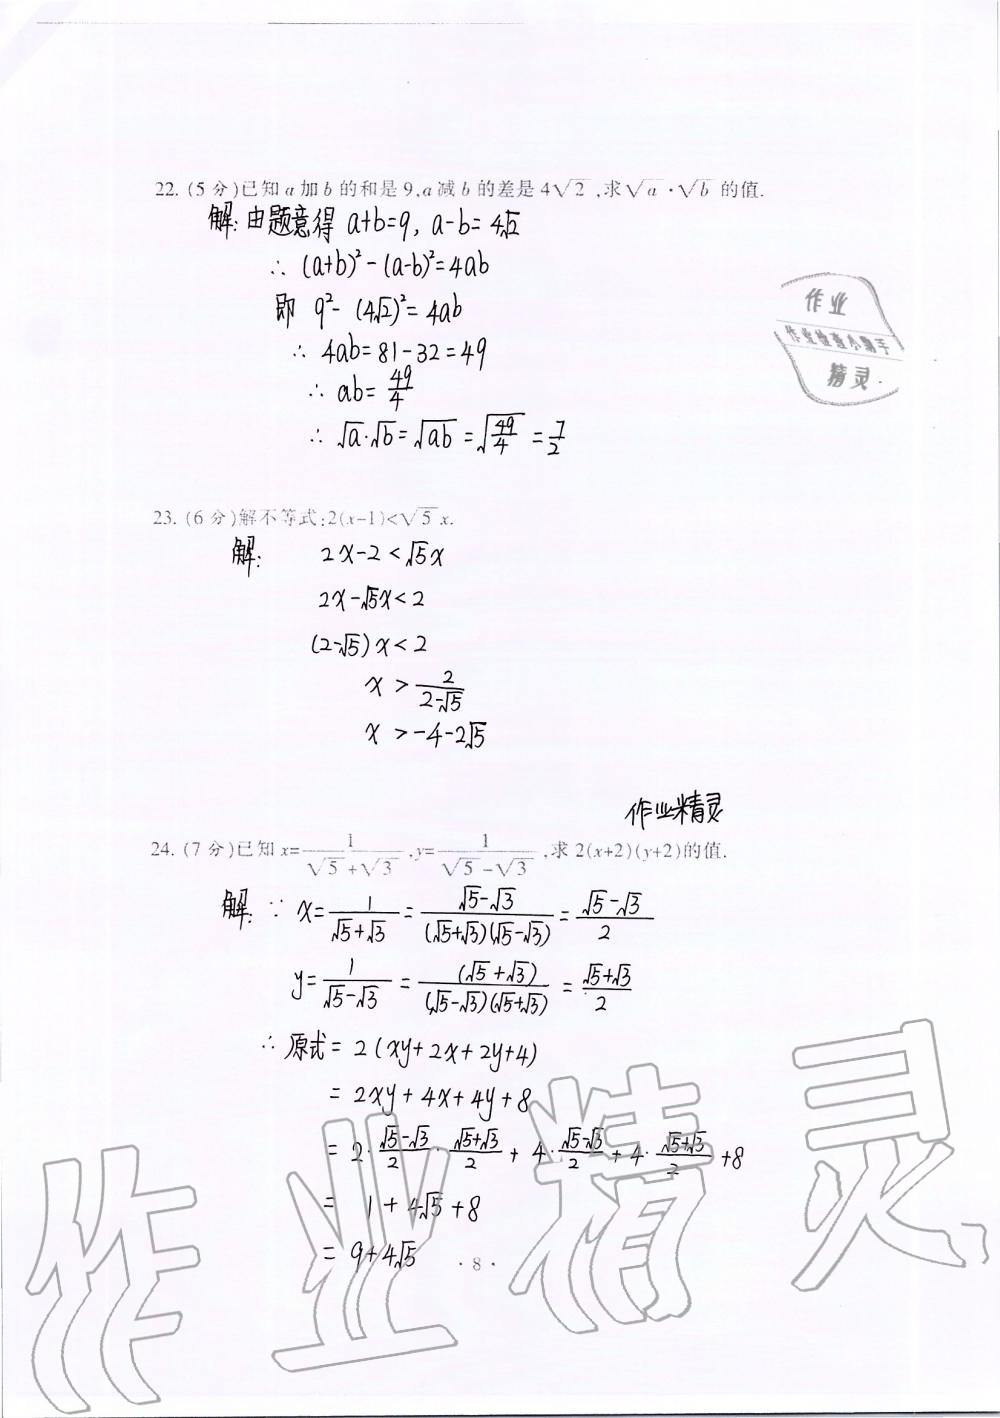 22. (5 分)已知 a 加 b 的和是 9,a 减 b 的差是 4√2 ,求√a ·√b 的值.
解: 由题意得 a+b=9, a-b=4√2
∴ (a+b)²-(a-b)²=4ab
即 9²-(4√2)²=4ab
∴ 4ab=81-32=49
∴ ab=49/4
∴ √a·√b=√ab=√49/4=7/2
作业
作业检查小帮手
精灵
23. (6 分)解不等式:2(x-1)<√5 x.
解: 2x-2<√5x
2x-√5x<2
(2-√5)x<2
x>2/(2-√5)
x>-4-2√5
作业精灵
24. (7 分)已知 x=1/(√5+√3),y=1/(√5-√3),求 2(x+2)(y+2)的值.
解: ∵ x=1/(√5+√3)=(√5-√3)/((√5+√3)(√5-√3))=(√5-√3)/2
y=1/(√5-√3)=(√5+√3)/((√5-√3)(√5+√3))=(√5+√3)/2
∴ 原式=2(xy+2x+2y+4)
=2xy+4x+4y+8
=2·(√5-√3)/2·(√5+√3)/2+4·(√5-√3)/2+4·(√5+√3)/2+8
=1+4√5+8
=9+4√5
· 8 ·
作业精灵